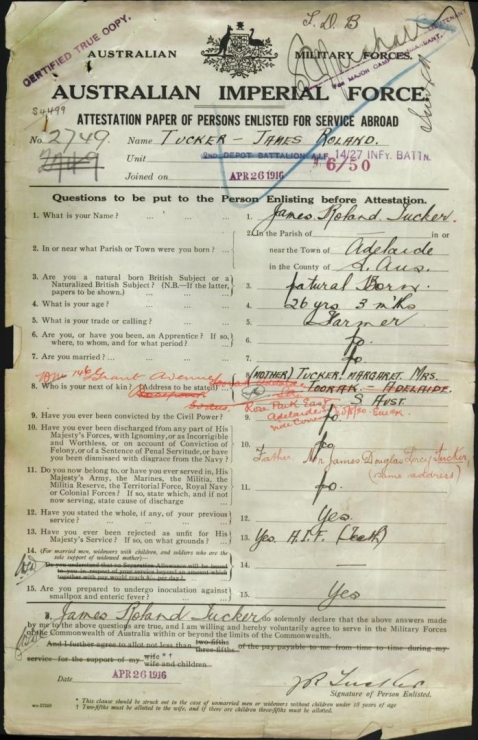 CERTIFIED TRUE COPY.
J. D. B
AUSTRALIAN MILITARY FORCES.
AUSTRALIAN IMPERIAL FORCE
S4499
ATTESTATION PAPER OF PERSONS ENLISTED FOR SERVICE ABROAD
No. 2749. Name TUCKER - JAMES ROLAND.
2749
Unit 2ND DEPOT BATTALION A.I.F. 14/27 INFY. BATTN.
Joined on APR 26 1916 6/50
Questions to be put to the Person Enlisting before Attestation.
1. What is your Name? ... ... ... 1. James Roland Tucker.
2. In or near what Parish or Town were you born? ... 2. In the Parish of in or
near the Town of Adelaide
in the County of S. Aus.
3. Are you a natural born British Subject or a
Naturalized British Subject? (N.B.—If the latter,
papers to be shown.) 3. Natural Born.
4. What is your age? ... ... ... 4. 26 yrs 3 mths
5. What is your trade or calling? ... ... 5. Farmer
6. Are you, or have you been, an Apprentice? If so,
where, to whom, and for what period? ... 6. No.
7. Are you married? ... ... ... 7. No.
146 Grant Avenue
8. Who is your next of kin? (Address to be stated) 8. (MOTHER) TUCKER MARGARET MRS.
TOORAK - ADELAIDE.
S AUST.
Rose Park East
Adelaide
9. Have you ever been convicted by the Civil Power? 9. No.
10. Have you ever been discharged from any part of His
Majesty's Forces, with Ignominy, or as Incorrigible
and Worthless, or on account of Conviction of
Felony, or of a Sentence of Penal Servitude, or have
you been dismissed with disgrace from the Navy? 10. No.
Father Mr James Douglas Tucker,
(same address)
11. Do you now belong to, or have you ever served in, His
Majesty's Army, the Marines, the Militia, the
Militia Reserve, the Territorial Force, Royal Navy
or Colonial Forces? If so, state which, and if not
now serving, state cause of discharge 11. No.
12. Have you stated the whole, if any, of your previous
service? ... ... ... 12. Yes.
13. Have you ever been rejected as unfit for His
Majesty's Service? If so, on what grounds? ... 13. Yes. A.I.F. (Teeth)
14. (For married men, widowers with children, and soldiers who are the
sole support of widowed mother)—
Do you understand that no Separation Allowance will be issued
to you in respect of your service beyond an amount which
together with pay would reach 8/- per day? 14. —
15. Are you prepared to undergo inoculation against
smallpox and enteric fever? ... ... 15. Yes
I, James Roland Tucker do solemnly declare that the above answers made
by me to the above questions are true, and I am willing and hereby voluntarily agree to serve in the Military Forces
of the Commonwealth of Australia within or beyond the limits of the Commonwealth.
And I further agree to allot not less than two-fifths three-fifths of the pay payable to me from time to time during my
service for the support of my wife * † wife and children.
Date APR 26 1916 J R Tucker
Signature of Person Enlisted.
* This clause should be struck out in the case of unmarried men or widowers without children under 18 years of age
† Two-fifths must be allotted to the wife, and if there are children three-fifths must be allotted.